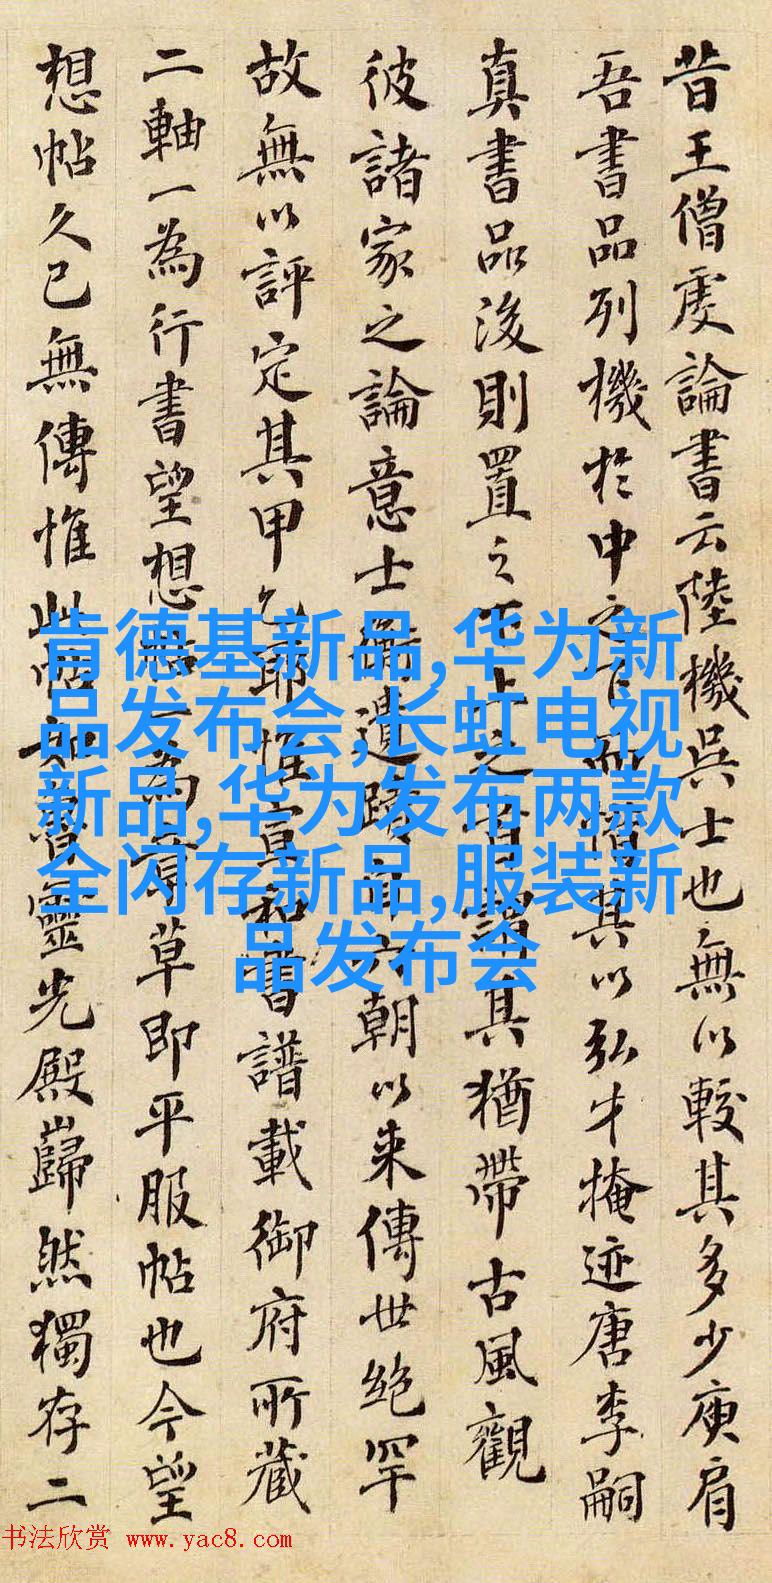 昔王僧虔論書云陸機吳士也無以較其多少庾肩
吾書品列機於中之下而惜其以弘才掩迹唐李嗣
真書品後則置之下上之謂其猶帶古風觀
彼諸家之論意士衡遺蹟自六朝以來傳世絶罕
故無以評定其甲乙耶惟宣和書譜載御府所藏
二軸一為行書望想帖一為章草即平服帖也今望
想帖久已無傳惟此帖如魯靈光殿巋然獨存二
肯德基新品,华为新
品发布会,长虹电视
新品,华为发布两款
全闪存新品,服装新
品发布会
书法欣赏 www.yac8.com